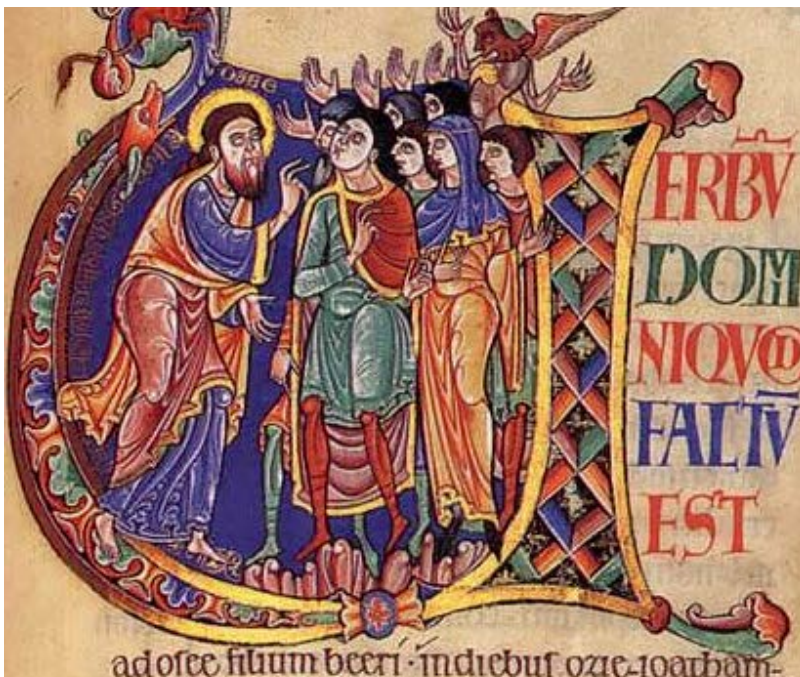 OSEE
VERBV̄
DOMI
NIQVOD
FACTV̄
EST
ad osee filium beeri · in diebus ozie · ioatham-